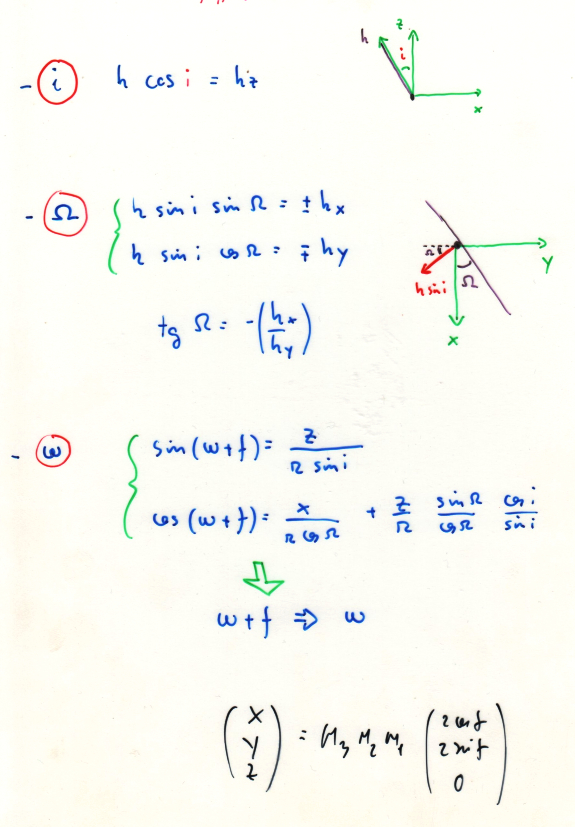 - i   h cos i = hz
h z i x
- Ω   { h sin i sin Ω = ± hx
h sin i cos Ω = ∓ hy
Ω h sin i Ω Y X
tg Ω = -(hx/hy)
- ω   { sin(ω+f) = z / (r sin i)
cos(ω+f) = x / (r cos Ω) + z/r sin Ω/cos Ω cos i/sin i
⇓
ω+f ⇒ ω
(X Y Z) = M3 M2 M1 (r cos f   r sin f   0)